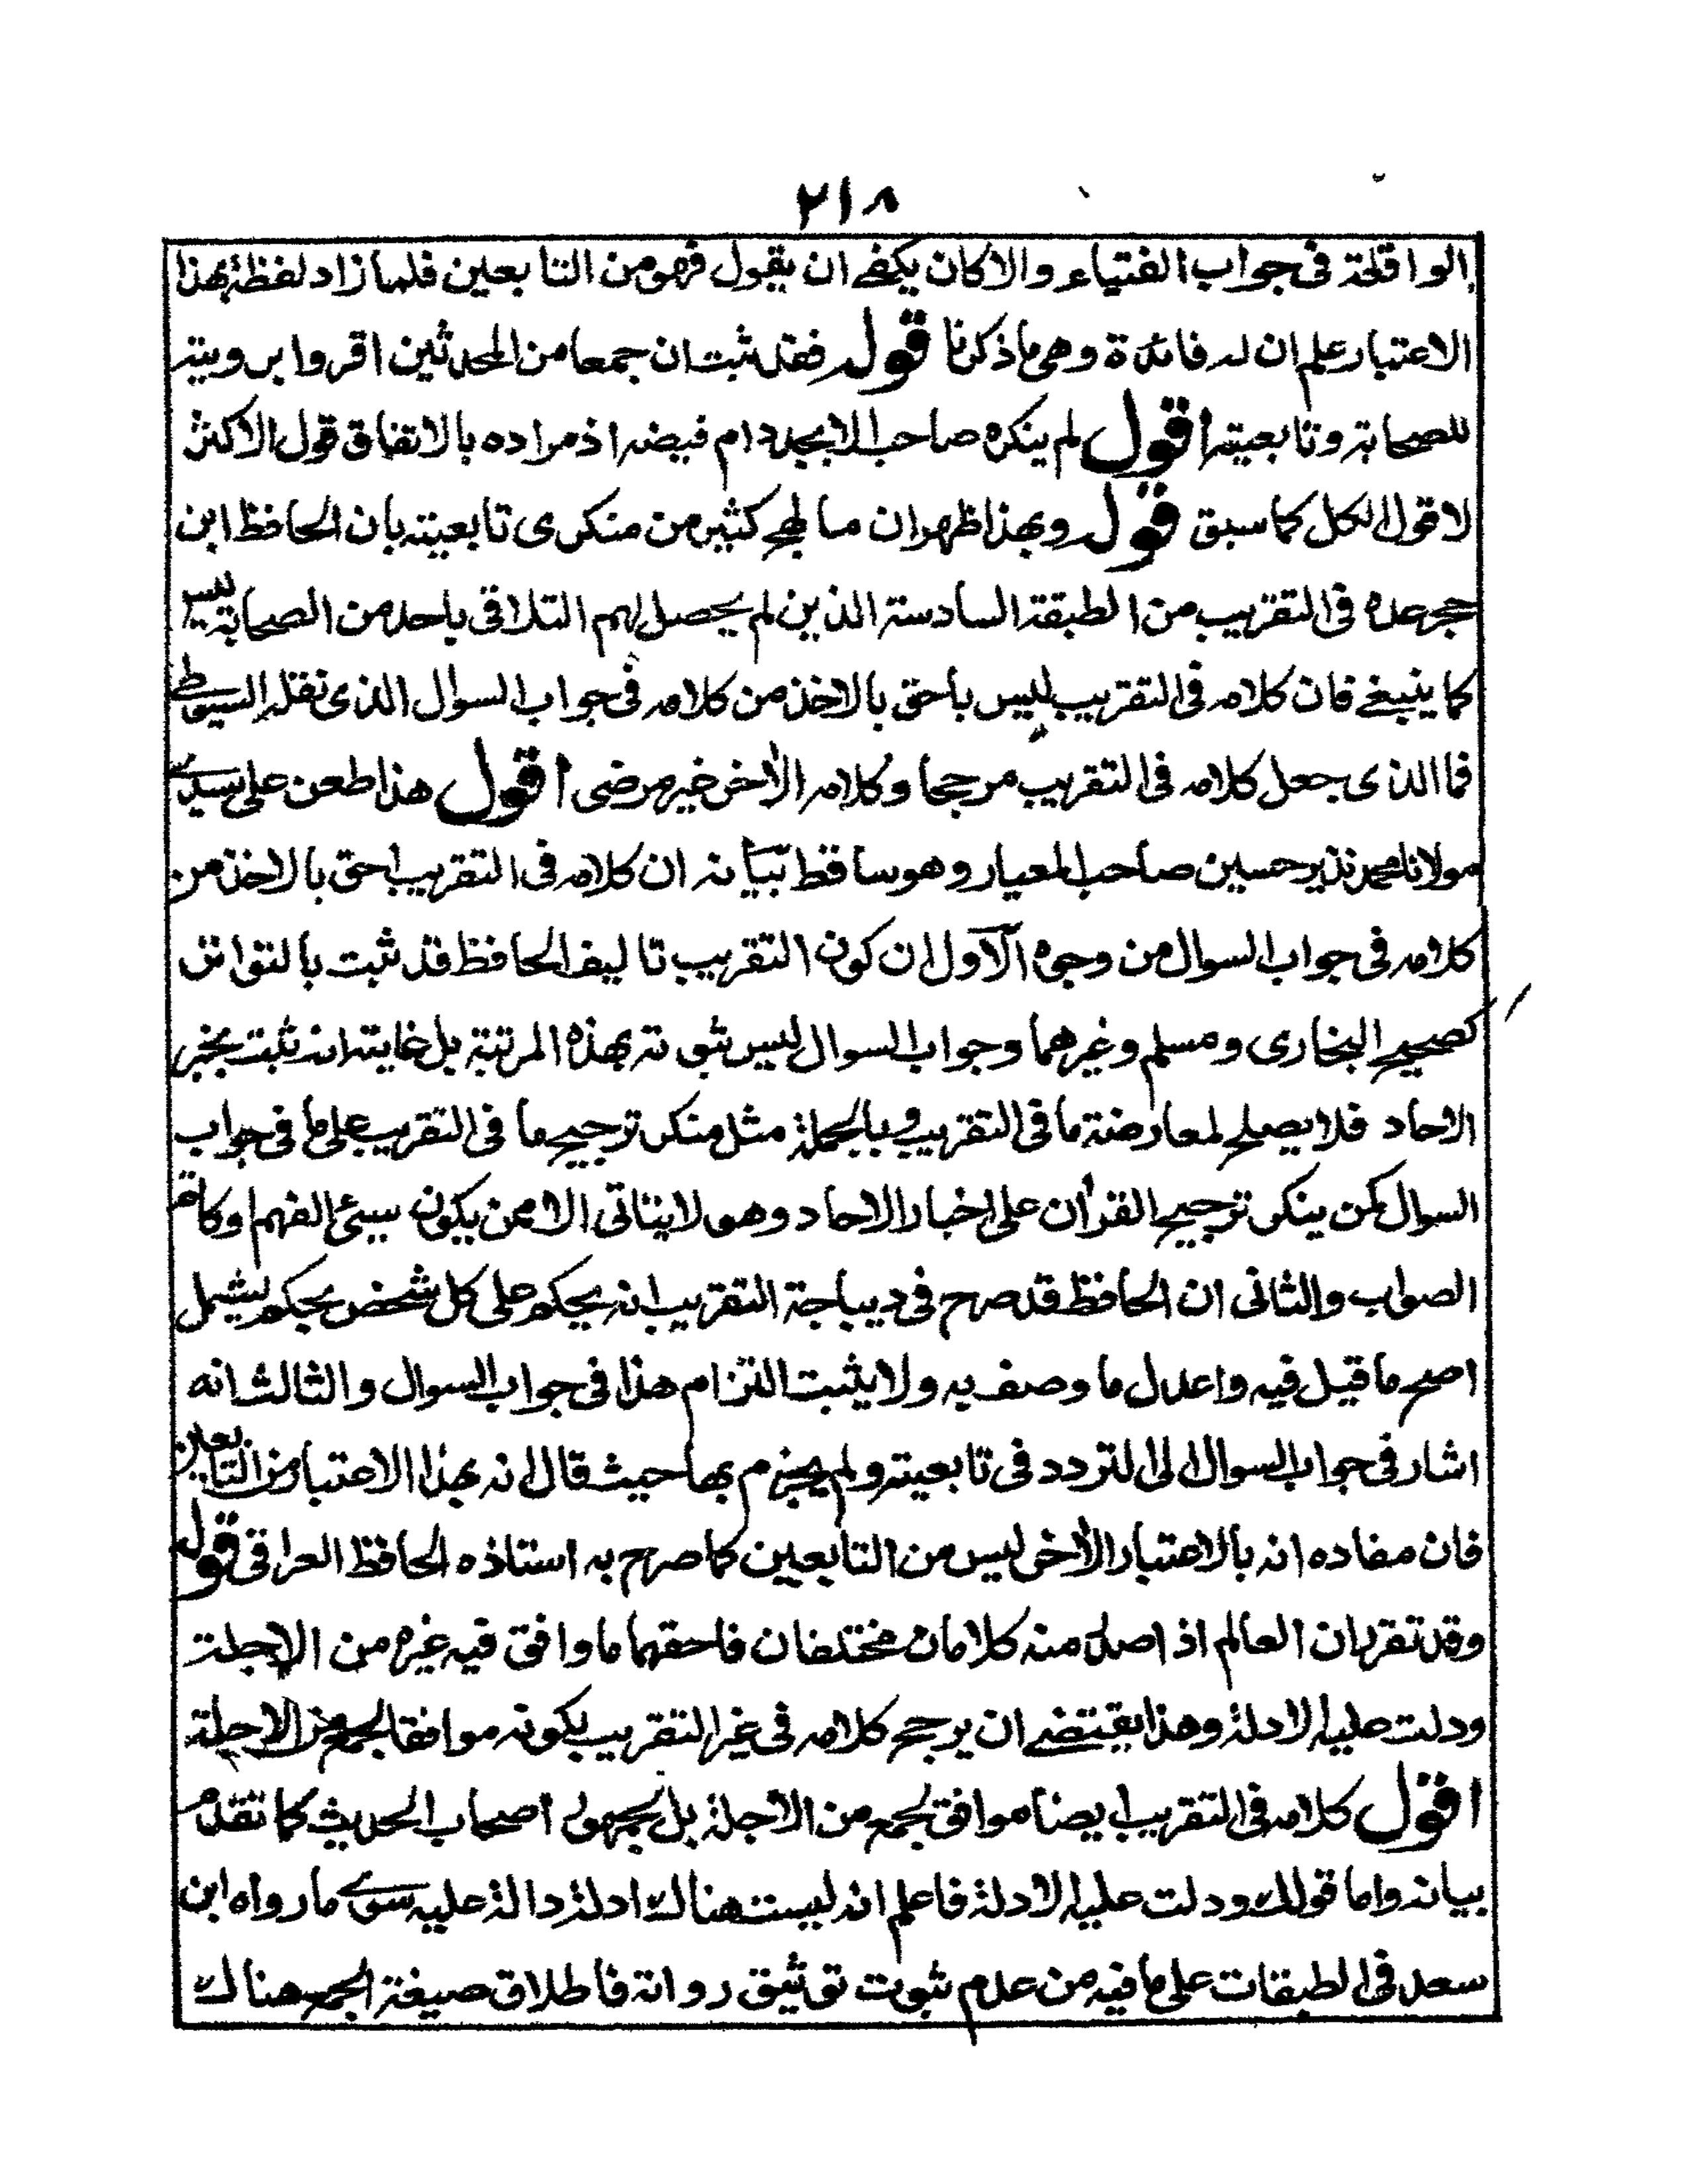 ٢١٨
الواقلة فى جواب الفتياء والا كان يكفے ان يقول فهو من التابعين فلما زاد لفظة بهذا
الاعتبار علم ان له فائدة وهى ما ذكرنا قوله فقد ثبت ان جمعا من المحدثين اقروا برويته
للصحابة وتابعيته اقول لم ينكره صاحب الابجد دام فيضه اذ مراده بالاتفاق قول الاكثر
لا قول الكل كما سبق قوله وبهذا ظهر ان ما لهج كثير من منكرى تابعيته بان الحافظ ابن
حجر عده فى التقريب من الطبقة السادسة الذين لم يحصل لهم التلاقى باحد من الصحابة ليس
كما ينبغے فان كلامه فى التقريب ليس باحق بالاخذ من كلامه فى جواب السوال الذى نقله السيوطى
فما الذى جعل كلامه فى التقريب مرجحا وكلامه الأخر غير مرضى اقول هذا طعن على سيدے
مولانا محمد نذير حسين صاحب المعيار وهو ساقط بَيَانه ان كلامه فى التقريب احق بالاخذ من
كلامه فى جواب السوال من وجوه الآول ان كون التقريب تاليف الحافظ قد ثبت بالتواتر
كصحيح البخارى ومسلم وغيرهما وجواب السوال ليس ثبوته بهذه المرتبة بل غايته انه ثبت بخبر
الاحاد فلا يصلح لمعارضة ما فى التقريب وبالجملة مثل منكر ترجيح ما فى التقريب على ما فى جواب
السوال كمن ينكر ترجيح القرأن على اخبار الاحاد وهو لا يتاتى الا ممن يكون سيئ الفهم او كاتم
الصواب والثانى ان الحافظ قد صرح فى ديباجة التقريب انه يحكم على كل شخص بحكم يشمل
اصح ما قيل فيه واعدل ما وصف به ولا يثبت التزام هذا فى جواب السوال والثالث انه
اشار فى جواب السوال الى التردد فى تابعيته ولم يجزم بها حيث قال انه بهذا الاعتبار من التابعين
فان مفاده انه بالاعتبار الأخر ليس من التابعين كما صرح به استاذه الحافظ العراقى قوله
وقد تقرر ان العالم اذا صدر منه كلامان مختلفان فاحقهما ما وافق فيه غيره من الاجلة
ودلت عليه الادلة وهذا يقتضے ان يرجح كلامه فى غير التقريب بكونه موافقا لجمع من الاجلة
اقول كلامه فى التقريب ايضا موافق لجمع من الاجلة بل لجمهور اصحاب الحديث كما تقدم
بيانه واما قولك ودلت عليه الادلة فاعلم انه ليست هناك ادلة دالة عليه سوے ما رواه ابن
سعد فى الطبقات على ما فيه من عدم ثبوت توثيق رواته فاطلاق صيغة الجمع هناك